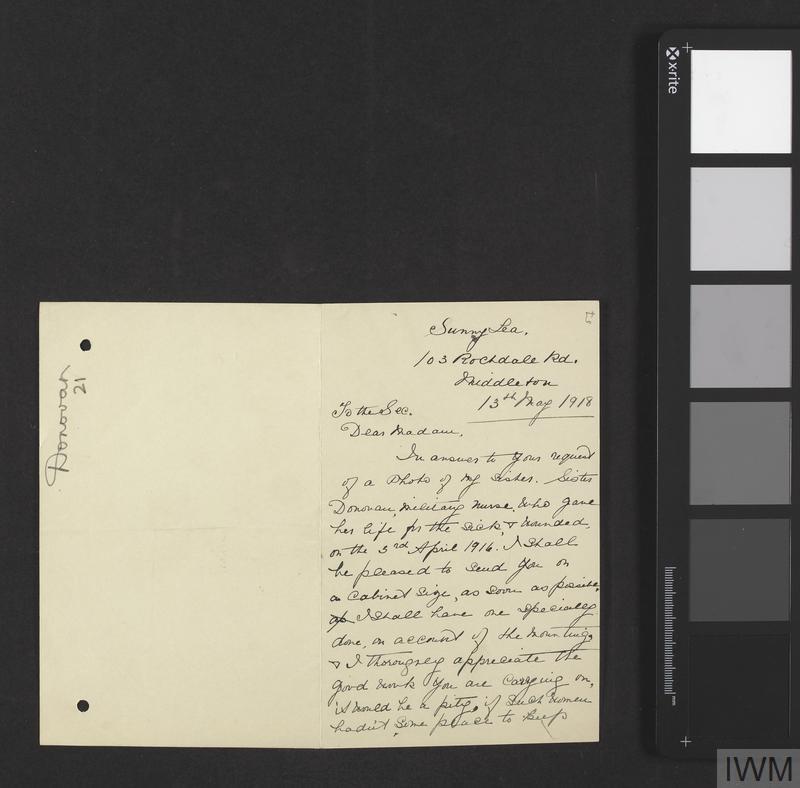 Sunny Lea.
103 Rochdale Rd.
Middleton
13th May 1918
To the Sec.
Dear Madam,
In answer to your request
of a Photo of my sister. Sister
Donovan, Military Nurse, who gave
her life for the sick, & wounded,
on the 3rd April 1916. I shall
be pleased to send you on
a cabinet size, as soon as possible,
I shall have one specially
done, on account of the mounting,
& I thorougley appreciate the
good work you are carrying on,
it would be a pity, if such women
hadn't some place to keep
Donovan
21
x-rite
mm
IWM